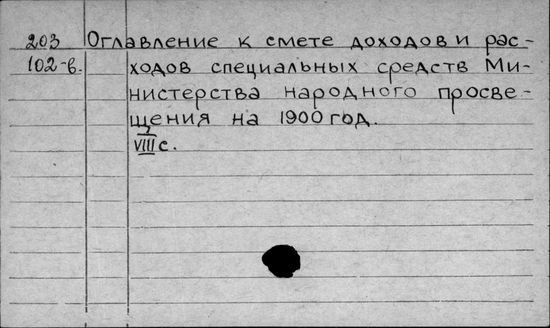 203 Оглавление к смете доходов и рас-
102-в. ходов специальных средств Ми-
нистерства народного просве-
щения на 1900 год.
VIII с.